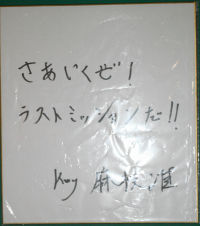 さあいくぜ!
ラストミッションだ!!
Key 麻枝准